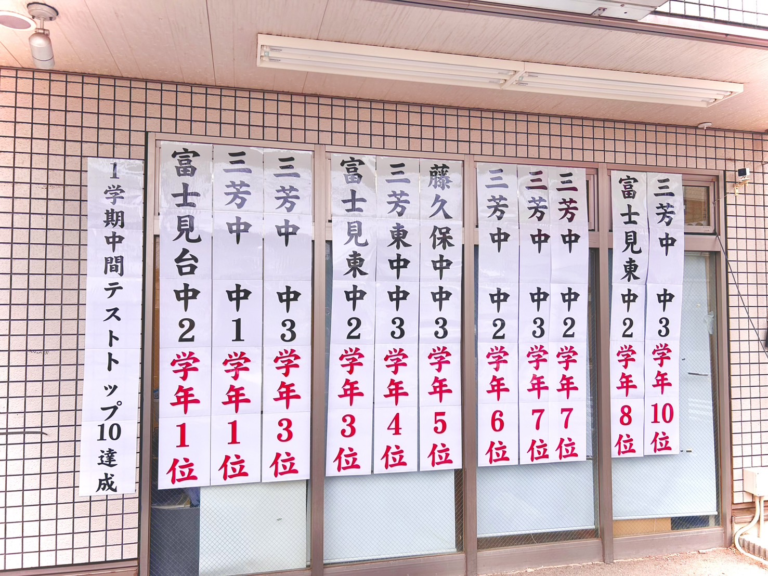 1学期中間テストトップ10達成
富士見台中2学年1位
三芳中 中1学年1位
三芳中 中3学年3位
富士見東中2学年3位
三芳東中中3学年4位
藤久保中中3学年5位
三芳中 中2学年6位
三芳中 中3学年7位
三芳中 中2学年7位
富士見東中2学年8位
三芳中 中3学年10位